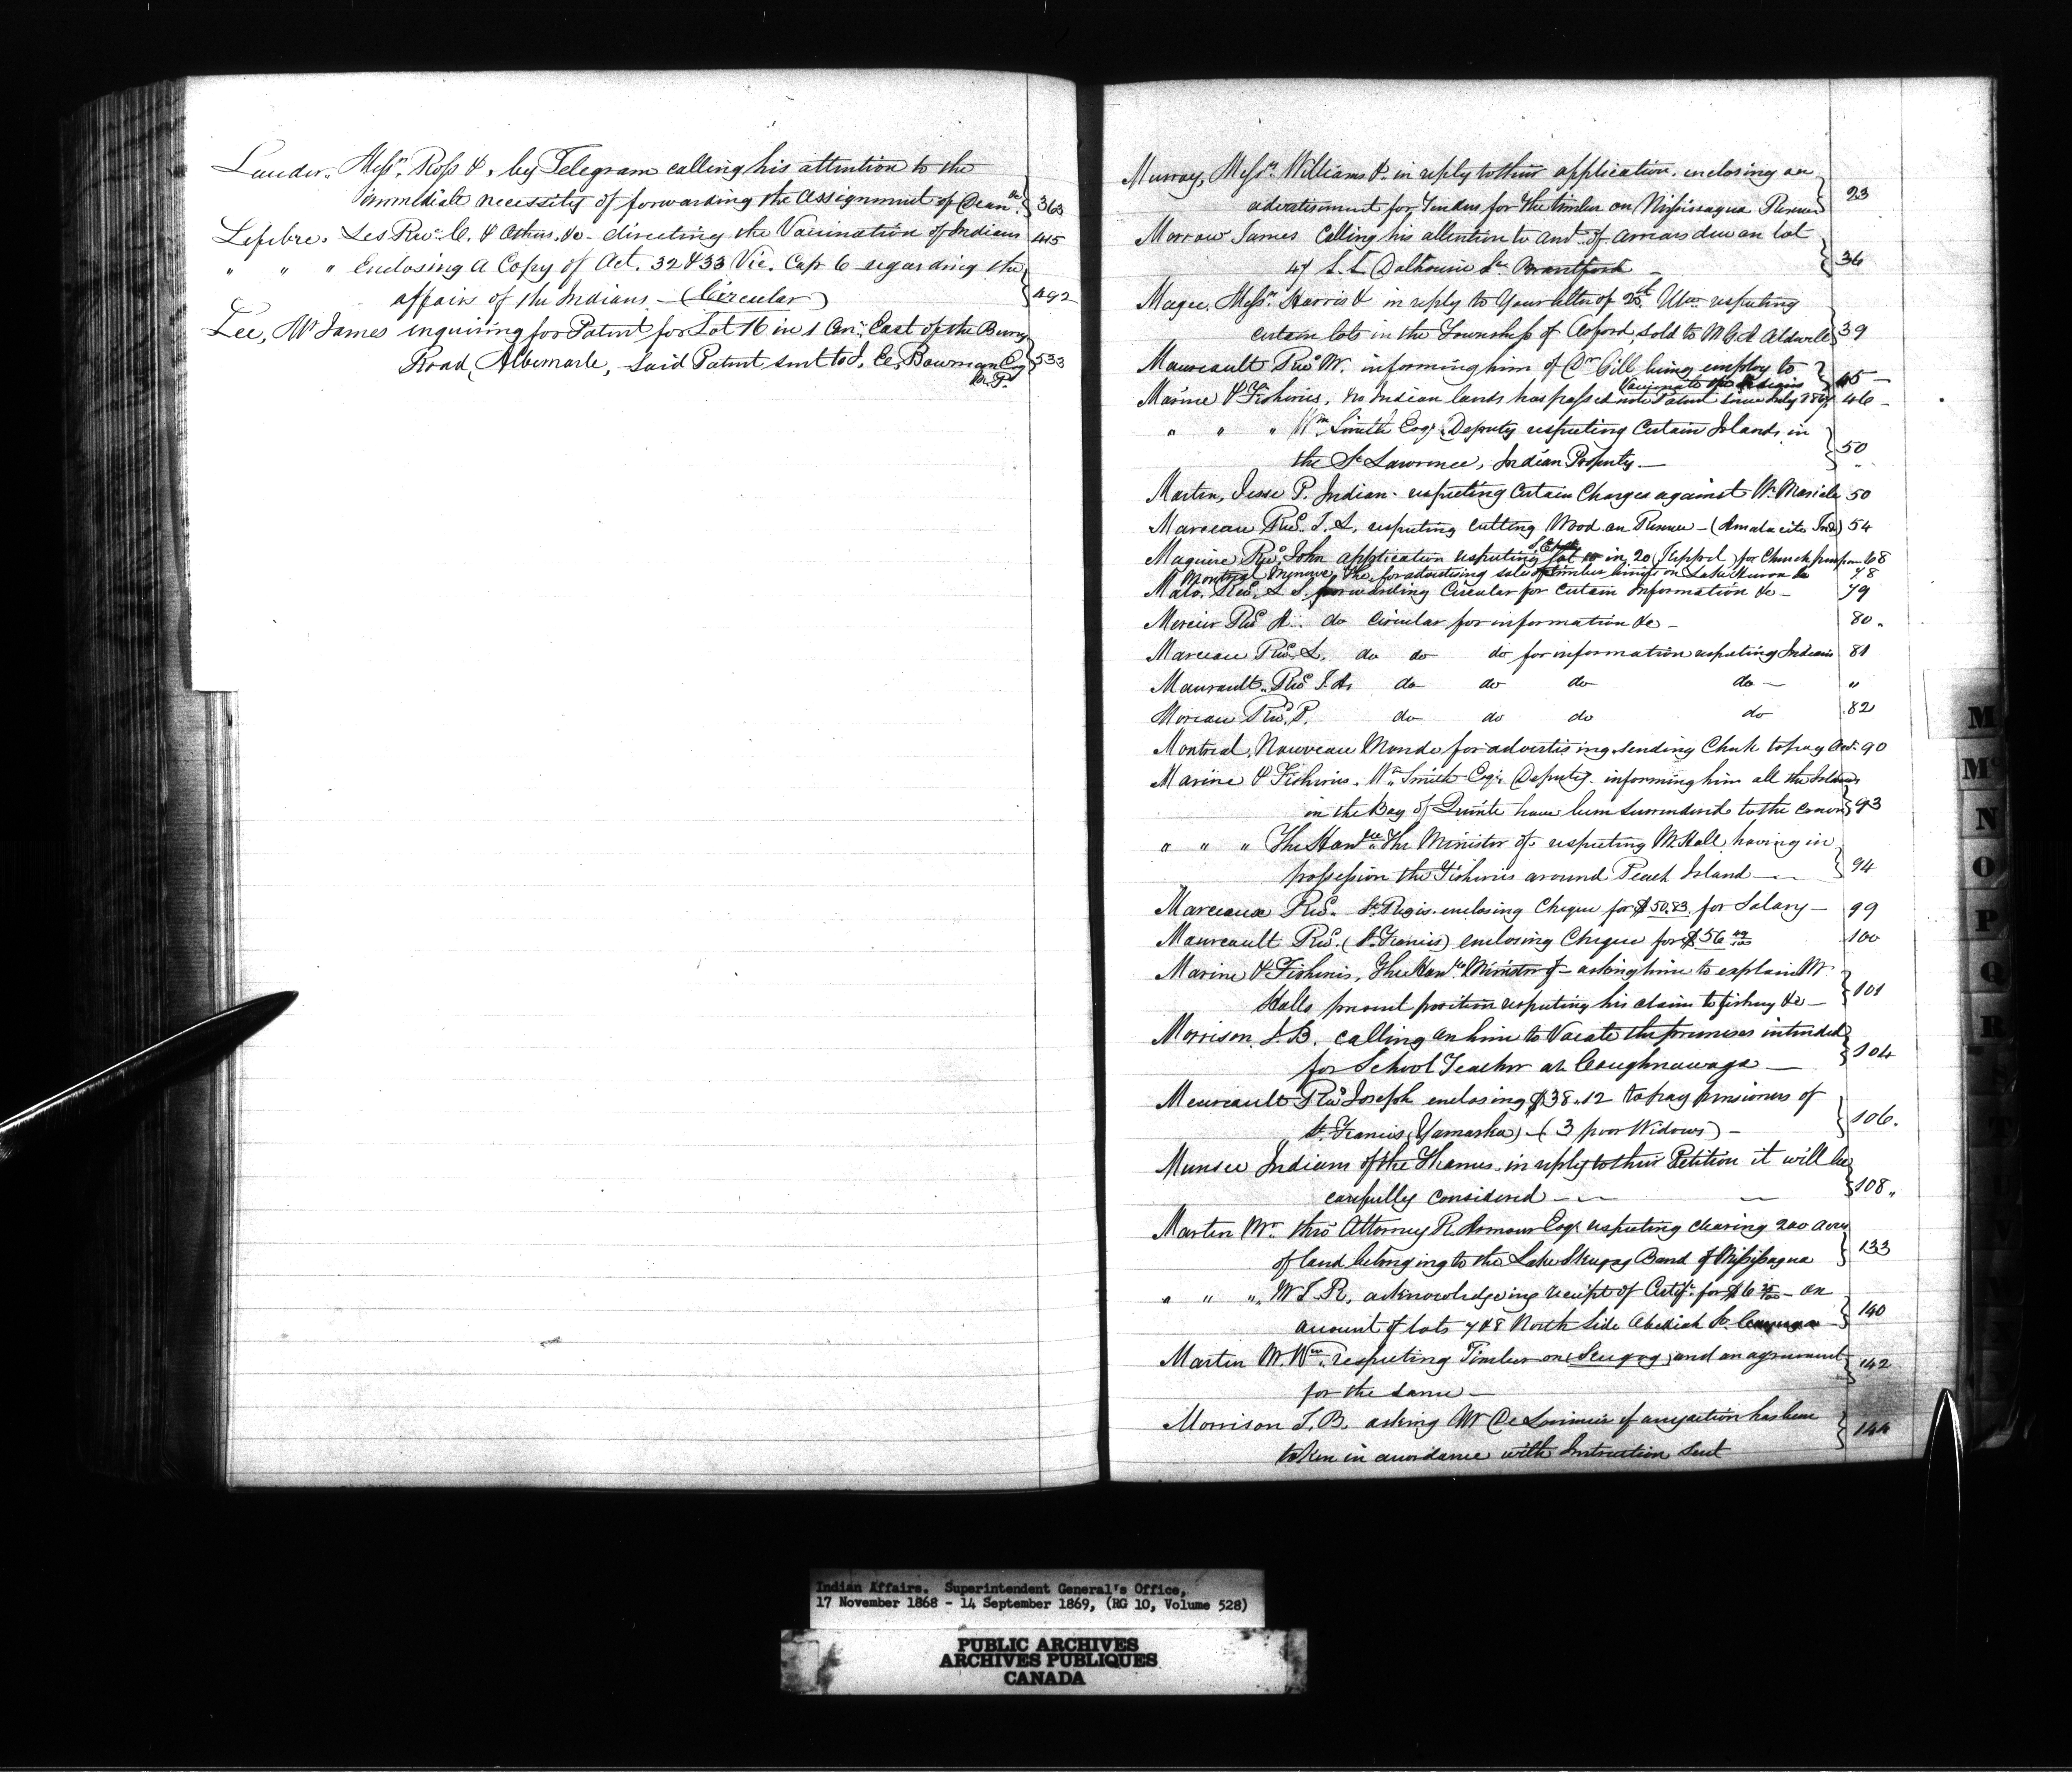 Lauder, Messrs. Ross &, by Telegram calling his attention to the
immediate necessity of forwarding the Assignment of Dean &c. 363
Lefebre, Les Revd. C. & Others, &c - directing the Vaccination of Indians 415
" " " Enclosing a Copy of Act. 32 & 33 Vic. Cap 6 regarding the
affairs of the Indians - (Circular) 492
Lee, Mr James inquiring for Patent for Lot 16 in 1 Con: East of the Bury
Road, Albemarle, said Patent sent to I. E. Bowman Esq 533
M.P.
Murray, Messrs. Williams & in reply to their application, enclosing an
advertisment for Tenders for the timber on Mississagua Reserve 23
Morrow James Calling his attention to amt. of arrears due on lot
47 S. S. Dalhousie St. Brantford - 36
Magee, Messrs. Harris & in reply to Your letter of 25th Ulto. respecting
certain lots in the Township of Oxford, sold to M G. A. Aldwell 39
Maureault Revd W. informing him of Dr Gill being employ to
Vaccinate the Indians 45 -
Marine & Fisheries, no Indian lands has passed into Patent since July 1867 46 -
" " " Wm Smith Esqr. Deputy respecting Certain Islands in
the St Lawrence, Indian Property - 50
Martin, Jesse P. Indian - respecting Certain Charges against W. Maricle 50
Marceau Revd. T. L. respecting cutting Wood on Reserve - (Amalacite Inds) 54
Maguire Revd John application respecting lot in 20 Keppel for Church purposes 68
Montreal Minerve, The, for advertising sale of timber limits on Lake Huron &c 78
Malo, Revd. L. S. forwarding Circular for certain Information &c - 79
Mercier Revd A. do Circular for information &c - 80.
Marceau Revd. L. do do do for information respecting Indians 81
Maurault, Revd J. A. do do do do - "
Moreau Revd. P. do do do do 82
Montreal, Nouveau Monde for advertising sending Check to pay Act. 90
Marine & Fisheries. Wm. Smith Esqr. Deputy - informing him all the Islands
in the Bay of Quinté have been surrendered to the Crown 93
" " " The Honble. The Minister of - respecting Mr Hall having in
possession the Fisheries around Peach Island - - 94
Marceaux Revd. St. Regis - enclosing Cheque for $50.83. for Salary - 99
Maureault Revd. (St. Francis) enclosing Cheque for $56 49/100 100
Marine & Fisheries, The Honble Minister of - asking him to explain Mr
Halls present position respecting his claim to fishery &c - 101
Morrison, J. B. calling on him to Vacate the premises intended
for School Teacher at Caughnawaga - 104
Meureault Revd Joseph enclosing $38.12 to pay pensioners of
St. Francis, (Yamaska) - (3 poor Widows) - 106.
Munsee Indians of the Thames - in reply to their Petition it will be
carefully considered - - - 108.
Martin Mr. thro' Attorney R. Armour Esqr respecting clearing 200 acres
of land belonging to the Lake Skugog Band of Missisagua 133
" " " Mr T. R. acknowledgeing receipt of Certif. for $6 - on
account of lots 7 & 8 North Side Abediah St. Cayuga - 140
Martin Mr. Wm. respecting Timber on Scugog, and an agreement
for the same - 142
Morrison J. B. asking Mr De Lorimier if any action has been
taken in accordance with Instruction sent 144
M
Mc
N
O
P
Q
R
S
T
U
V
Indian Affairs. Superintendent General's Office,
17 November 1868 - 14 September 1869, (RG 10, Volume 528)
PUBLIC ARCHIVES
ARCHIVES PUBLIQUES
CANADA